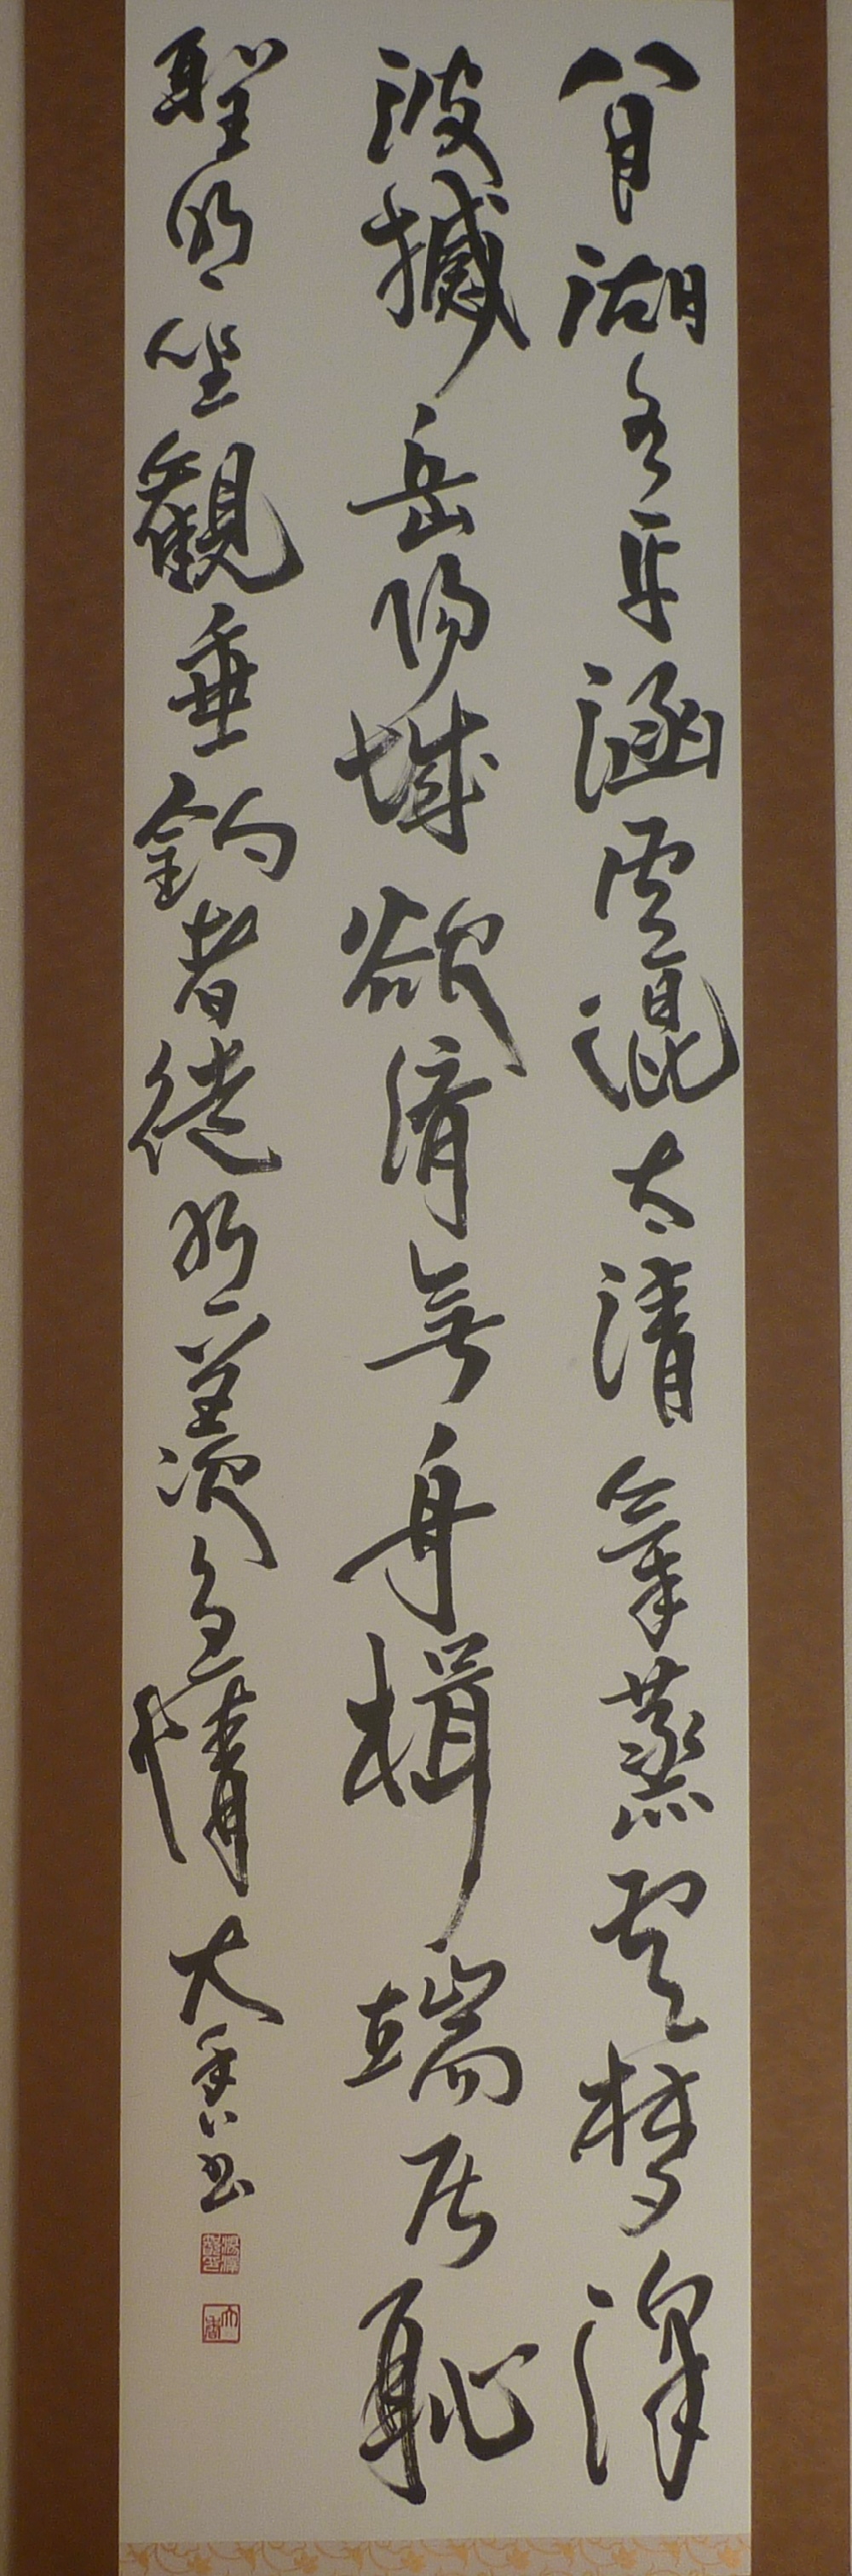 八月湖水平涵虚混太清氣蒸雲夢澤
波撼岳陽城欲済無舟楫端居恥
聖明坐觀垂釣者徒有羨魚情 大香書